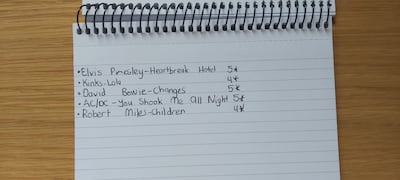 •Elvis Presley-Heartbreak Hotel 5*
•Kinks-Lola 4*
•David Bowie-Changes 5*
•AC/DC-You Shook Me All Night 5*
•Robert Miles-Children 4*